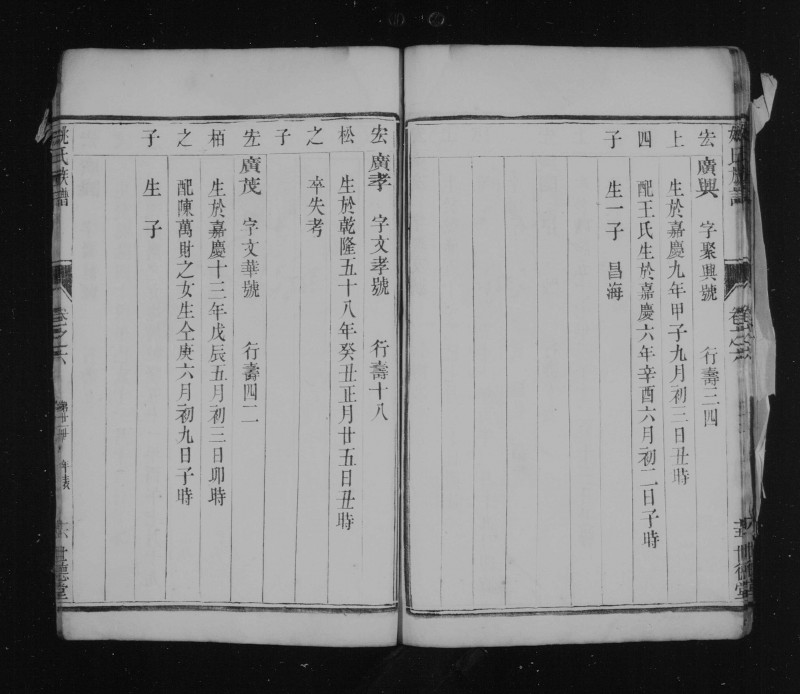 宏廣興 字聚興號 行壽三四
上 生於嘉慶九年甲子九月初三日丑時
四 配王氏生於嘉慶六年辛酉六月初二日子時
子 生一子 昌海
宏廣孝 字文孝號 行壽十八
松 生於乾隆五十八年癸丑正月廿五日丑時
之 卒失考
子
廣茂 字文華號 行壽四二
栢 生於嘉慶十三年戊辰五月初三日卯時
之 配陳萬財之女生仝庚六月初九日子時
子 生 子
姚氏族譜 卷之六 世德堂